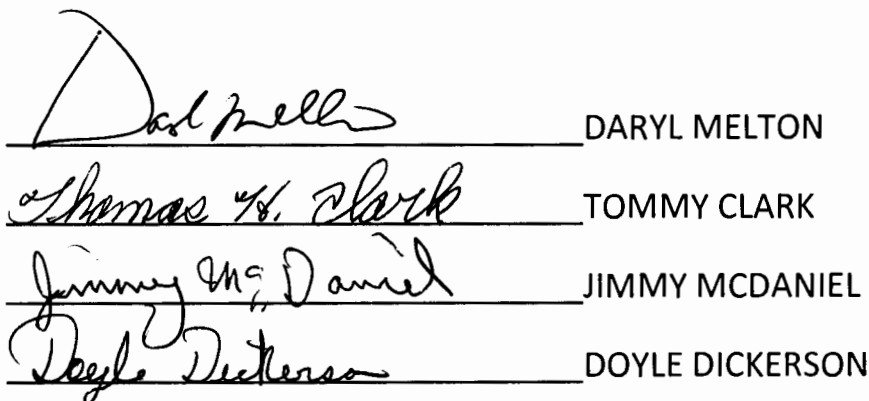 Daryl Melton DARYL MELTON
Thomas H. Clark TOMMY CLARK
Jimmy McDaniel JIMMY MCDANIEL
Doyle Dickerson DOYLE DICKERSON